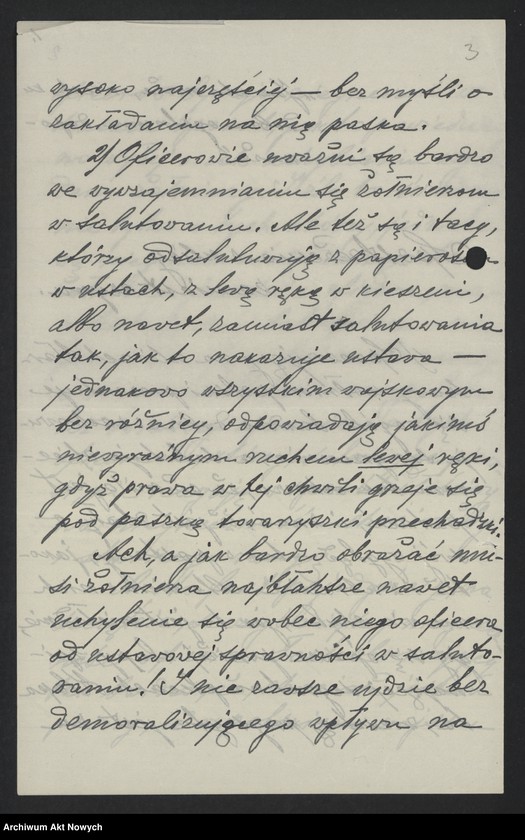 3
wysoko najczęściéj — bez myśli o
zakładaniu na nię paska.
2) Oficerowie uważni są bardzo
we wywzajemnianiu się żołnierzom
w salutowaniu. Ale też są i tacy,
którzy odsalutowują z papierosem
w ustach, z lewą ręką w kieszeni,
albo nawet, zamiast salutowania
tak, jak to nakazuje ustawa —
jednakowo wszystkim wojskowym
bez różnicy, odpowiadają jakimś
niewyraźnym ruchem lewej ręki,
gdyż prawa w tej chwili grzeje się
pod paszką towarzyszki przechadzki.
Ach, a jak bardzo obrażać mu-
si żołnierza najbłahsze nawet
uchylenie się wobec niego oficera
od ustawowej sprawności w saluto-
waniu! I nie zawsze ujdzie bez
demoralizującego wpływu na
Archiwum Akt Nowych